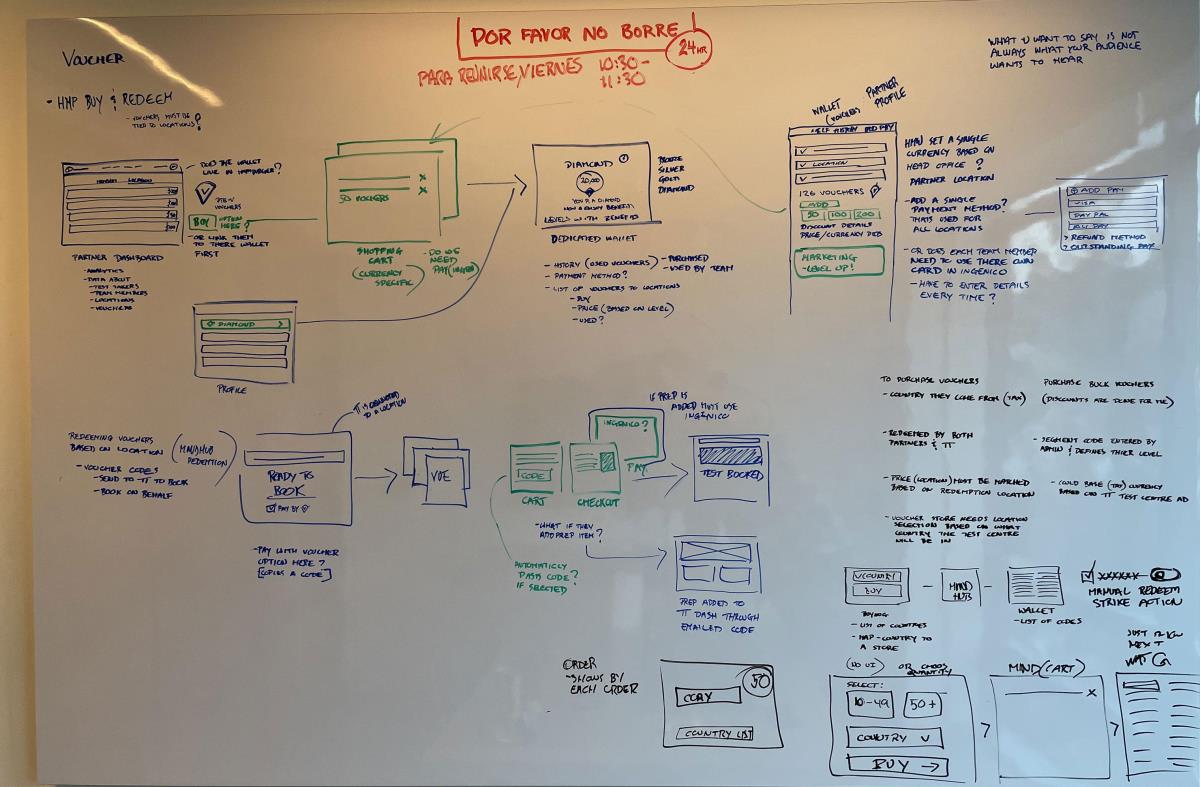 POR FAVOR NO BORRE
24HR
PARA REUNIRSE/VIERNES 10:30-
11:30
WHAT U WANT TO SAY IS NOT
ALWAYS WHAT YOUR AUDIENCE
WANTS TO HEAR
VOUCHER
- HMP BUY & REDEEM
- VOUCHERS MUST BE
TIED TO LOCATIONS?
- DOES THE WALLET
LIVE IN HAMBURGER?
LOCATION
VOUCHERS
BUY
OPTION
HERE?
- OR LINK THEM
TO THERE WALLET
FIRST
PARTNER DASHBOARD
- ANALYTICS
- DATA ABOUT
- TEST TAKERS
- TEAM MEMBERS
- LOCATIONS
- VOUCHERS
50 VOUCHERS
X
X
SHOPPING
CART
(CURRENCY
SPECIFIC)
- DO WE
NEED
PAY (INGEN)
DIAMOND
20,000
YOU'R A DIAMOND
LEVELS WITH BENEFITS
BRONZE
SILVER
GOLD
DIAMOND
DEDICATED WALLET
- HISTORY (USED VOUCHERS) - PURCHASED
- USED BY TEAM
- PAYMENT METHOD?
- LIST OF VOUCHERS TO LOCATIONS
- BUY
- PRICE (BASED ON LEVEL)
- USED?
WALLET
(VOUCHERS
PARTNER
PROFILE
HISTORY ADD PAY
LOCATION
126 VOUCHERS
ADD
50 100 200
DISCOUNT DETAILS
PRICE/CURRENCY DEB
MARKETING
- LEVEL UP!
SET A SINGLE
CURRENCY BASED ON
HEAD OFFICE?
PARTNER LOCATION
- ADD A SINGLE
PAYMENT METHOD?
THATS USED FOR
ALL LOCATIONS
- OR DOES EACH TEAM MEMBER
NEED TO USE THERE OWN
CARD IN INGENICO
- HAVE TO ENTER DETAILS
EVERY TIME?
ADD PAY
VISA
PAY PAL
ALI PAY
> REFUND METHOD
? OUTSTANDING PAY
DIAMOND
PROFILE
REDEEMING VOUCHERS
BASED ON LOCATION
- VOUCHER CODES
- SEND TO TT TO BOOK
- BOOK ON BEHALF
(MINDHUB
REDEMTION)
TT IS CONNECTED
TO A LOCATION
READY TO
BOOK
PAY BY
- PAY WITH VOUCHER
OPTION HERE?
[COPIES A CODE]
VUE
IF PREP IS
ADDED MUST USE
INGENICO
INGENICO?
PAY
CODE
CART
CHECKOUT
TEST BOOKED
- WHAT IF THEY
ADD PREP ITEM?
AUTOMATICLY
PASTS CODE?
IF SELECTED
PREP ADDED TO
TT DASH THROUGH
EMAILED CODE
TO PURCHASE VOUCHERS
- COUNTRY THEY COME FROM (TAX)
- REDEEMED BY BOTH
PARTNERS & TT
- PRICE (LOCATION) MUST BE MATCHED
BASED ON REDEMPTION LOCATION
- VOUCHER STORE NEEDS LOCATION
SELECTION BASED ON WHAT
COUNTRY THE TEST CENTRE
WILL BE IN
PURCHASE BULK VOUCHERS
(DISCOUNTS ARE DONE FOR ME)
- SEGMENT CODE ENTERED BY
ADMIN & DEFINES THIER LEVEL
- COULD BASE (TAX) CURRENCY
BASED ON TT TEST CENTRE AD
COUNTRY
BUY
BUYING
- LIST OF COUNTRIES
- MAP - COUNTRY TO
A STORE
MIND
HUB
WALLET
- LIST OF CODES
XXXXXX
MANUAL REDEEM
STRIKE ACTION
ORDER
- SHOWS BY
EACH ORDER
50
COPY
COUNTRY LIST
(NO UI)
OR CHOOS
QUANTITY
SELECT:
10-49
50+
COUNTRY
BUY →
MIND (CART)
X
NEXT